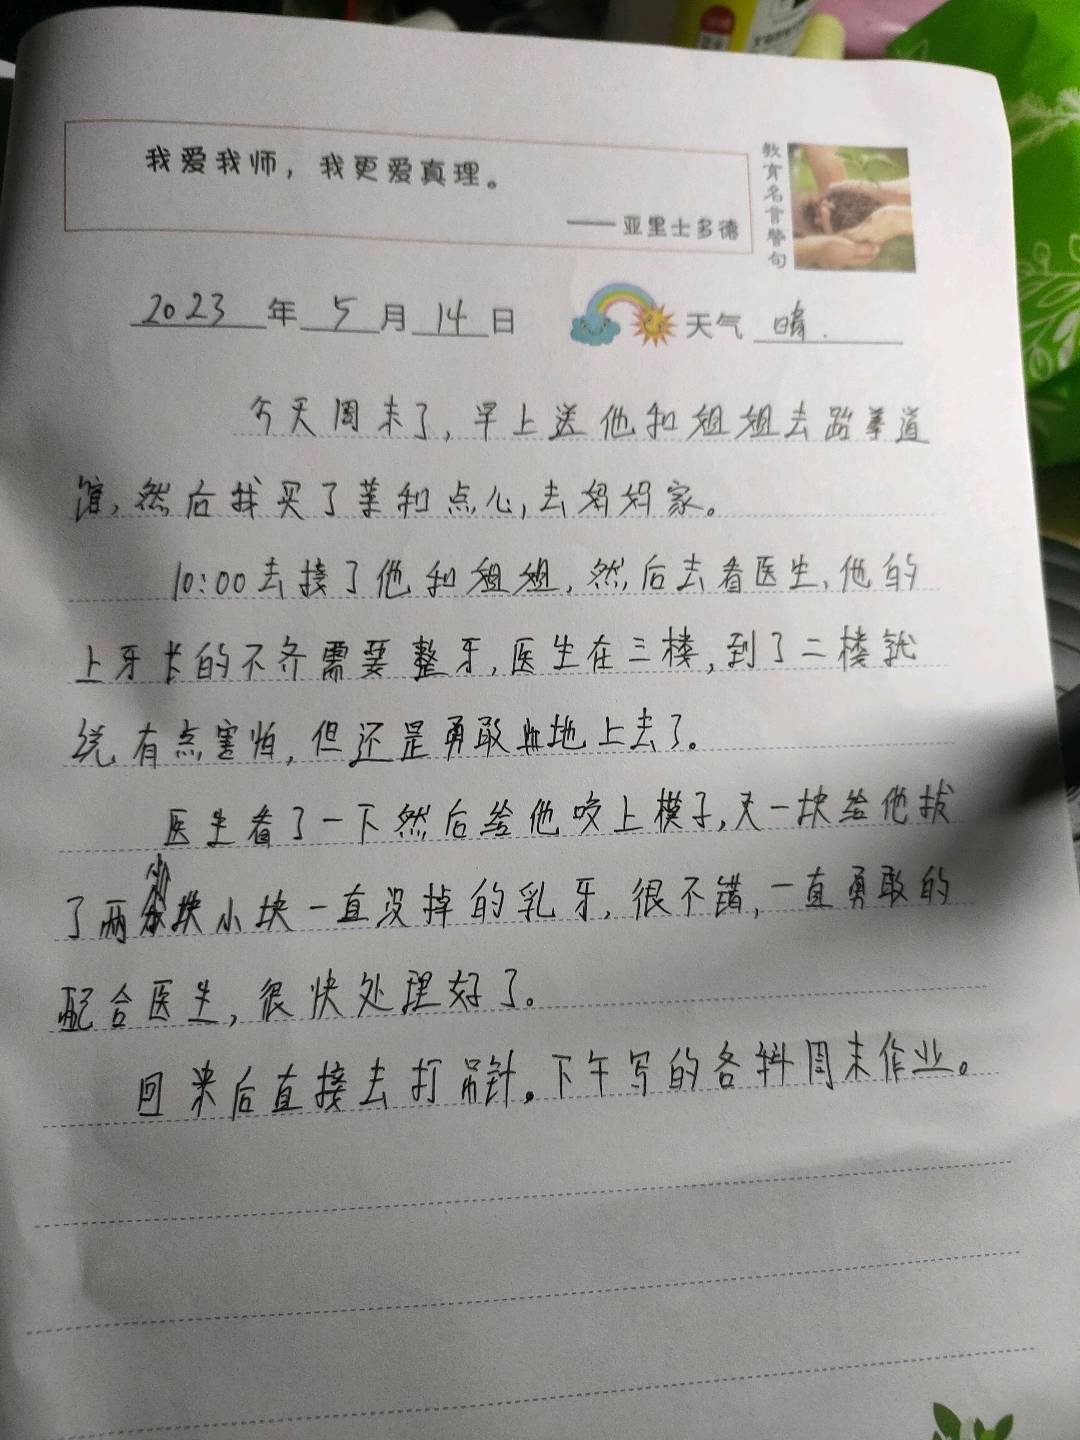 我爱我师，我更爱真理。
——亚里士多德
教育名言警句
2023年5月14日 天气 晴.
今天周末了，早上送他和姐姐去跆拳道
馆，然后我买了菜和点心，去妈妈家。
10:00去接了他和姐姐，然后去看医生，他的
上牙长的不齐需要整牙，医生在三楼，到了二楼就
说有点害怕，但还是勇敢地上去了。
医生看了一下然后给他咬上模子，又一块给他拔
了两小块一直没掉的乳牙，很不错，一直勇敢的
配合医生，很快处理好了。
回来后直接去打吊针。下午写的各科周末作业。